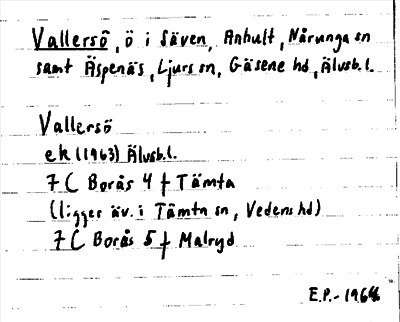 Vallersö, ö i Säven, Anhult, Nårunga sn
samt Äspenäs, Ljurs sn, Gäsene hd, Älvsb.l.
Vallersö
ek (1963) Älvsb.l.
7 C Borås 4 f Tämta
(ligger äv. i Tämta sn, Vedens hd)
7 C Borås 5 f Malryd
E.P. - 1966